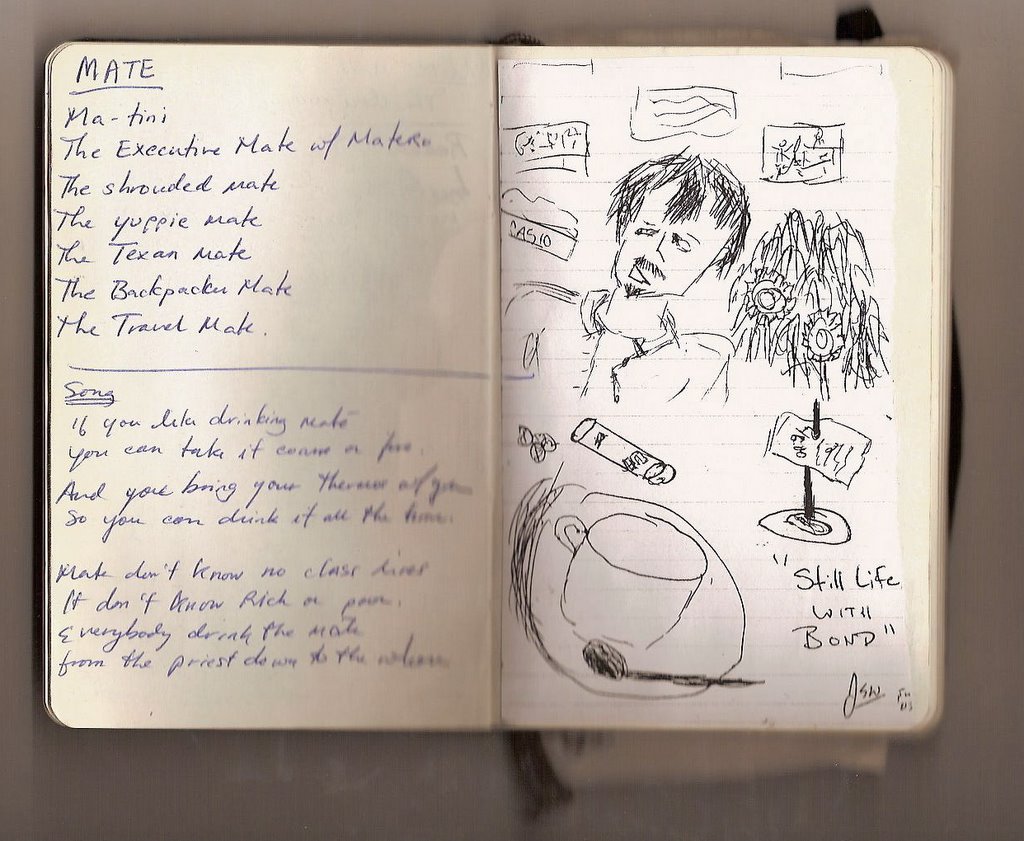 MATE
Ma-tini
The Executive Mate w/ Matero
The shrouded mate
The yuppie mate
The Texan Mate
The Backpacker Mate
The Travel Mate.
Song
If you like drinking mate
you can take it coarse or fine.
And you bring your Thermos
So you can drink it all the time.
Mate don't know no class lines
It don't know Rich or poor.
Everybody drink the mate
from the priest down to the
CASIO
"Still Life
WITH
BOND"
JSW